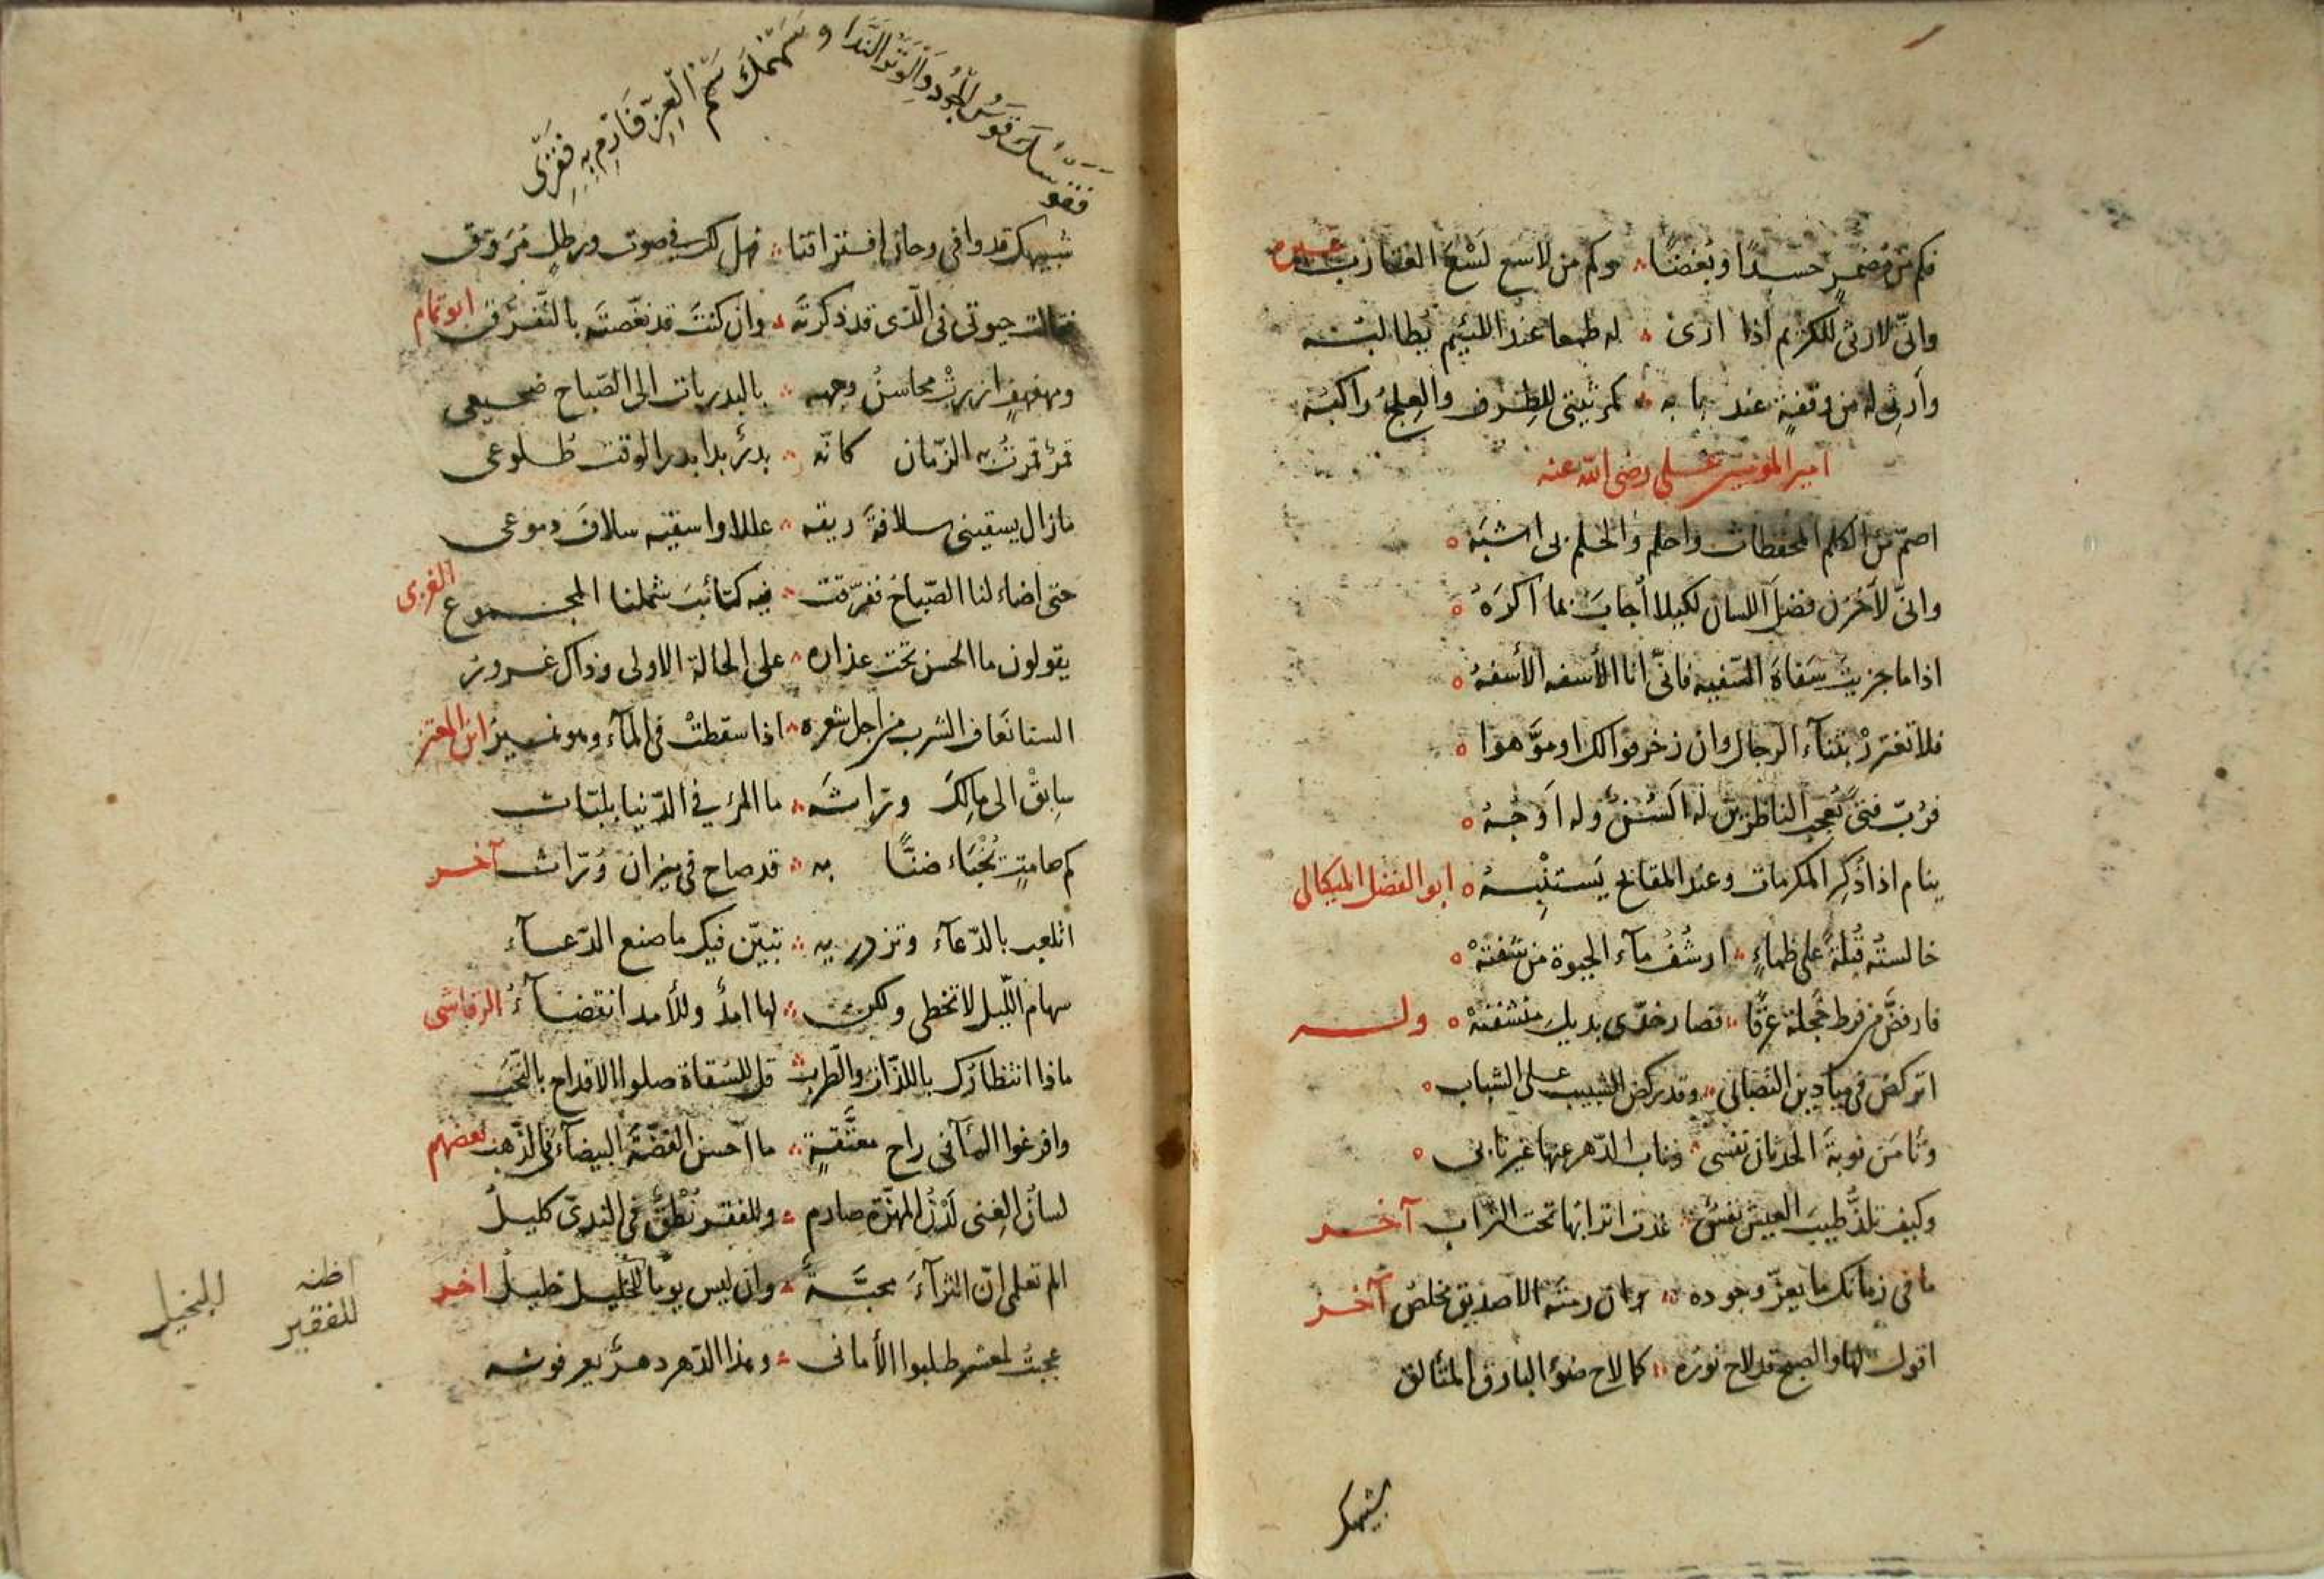 فكم من مضمر حسدًا وبُغضًا وكم من لاسع لَسْعَ العقارب غيره
وانّى لارثى للكريم اذا ارى له طمعا عند اللئيم يُطالبُه
وأرثى له من وقفةٍ عند بابه كمرثيتى للطِرف والعِلج راكبُه
امير المؤمنين على رضى الله عنه
اصمّ عن الكلم المحفظات واحلم والحلم بى اشبَهُ
وانّى لأخزن فضلَ اللسان لكيلا أُجابَ بما اكرَهُ
اذا ما جزيت سَفاهَ السّفيه فانّى انا الأسفه الأسفهُ
فلا تغتررْ بثناء الرجال وان زخرفوا لك او موّهوا
فرُبّ فتىً يُعجب الناظرين له السُنٌ وله اَوجُهُ
ينام اذا ذُكِر المكرمات وعند المقابح يَستنْبِهُ ابو الفضل الميكالى
خالستُه قُبلةً على ظماءٍ ارشُفُ مآء الحيوة من شفتهْ
فارفضّ من فرط خجلة عرقًا فصار خدّى بديل منشفتهْ وله
اتركض فى ميادين التصابى وقد ركض المشيب على الشباب
وتأمَن نوبةَ الحدثان نفسى وناب الدّهر عنها غير نابى
وكيف تلذّ طيبَ العيش نفسٌ غدت اترابها تحت التراب آخر
ما فى زمانك ما يعزّ وجوده ان رمتَه الا صديق مخلصُ آخر
اقول لها والصبح قد لاح نوره كما لاح ضوء البارق المتألق
شبيهك
فقوسُكَ قوسُ الجُود والوَتَرُ النَّدَا وسَهْمُكَ سَهْمُ العِزّ فَارْمِ بِهِ فَقْرِى
شبيهك قد وافى وحان افتراقنا فهل لك فى صوت ورطلٍ مُرَوّق
فقالت حيوتى فى الّذى قد ذكرتَه وان كنتَ قد نغّصتَه بالتّفرّق ابو تمام
ومهفهفٍ ازررتْ محاسنُ وجهه بالبدر بات الى الصّباح ضجيعى
قمرٌ قمرتُ به الزّمان كانّه بدرٌ بدا بدر الوقت طُلوعى
مازال يسقينى سلافةَ ريقه عللا واسقيه سلافَ دموعى
حتى اضاء لنا الصّباحُ ففرّقت فيه كتائبَ شملنا المجموع الغربى
يقولون ما الحسن تحت عذاره على الحالة الاولى وذاك غرورُ
السنا نَعَاف الشرب من اجل شعره اذا سقطتْ فى المآء وهو نميرُ ابن المعتز
سابِقْ الى مالِكَ وُرّاثَه ما المرء فى الدّنيا بلبّاث
كم صامتٍ تُخْبَاء ضنًّا به قد صاح فى ميزان وُرّاث آخر
اتلعب بالدّعآء وتزدريه تبيّن فيك ما صنع الدّعآء
سهام اللّيل لا تخطى ولكن لها امدٌ وللأمد انقضآءُ الرقاشى
ماذا انتظارُك باللذّات والطّرب قل للسُقاة صلوا الاقداح بالنُّخَب
وافرغوا المآء فى راح معتّقةٍ ما احسن الفضّةَ البيضآء فى الذّهب بعضهم
لسانُ الغِنى لَدْنُ المهزّة صارم وللفقر نُطْقٌ فى الندىّ كليلُ
الم تعلمى انّ الثرآءَ محبّةٌ وان ليس يوما للخليل خليلُ اخر
عجبتُ لمعشر طلبوا الأمانى وهذا الدّهر دهرٌ يعرفونه
اظنه
للفقير
للبخيل